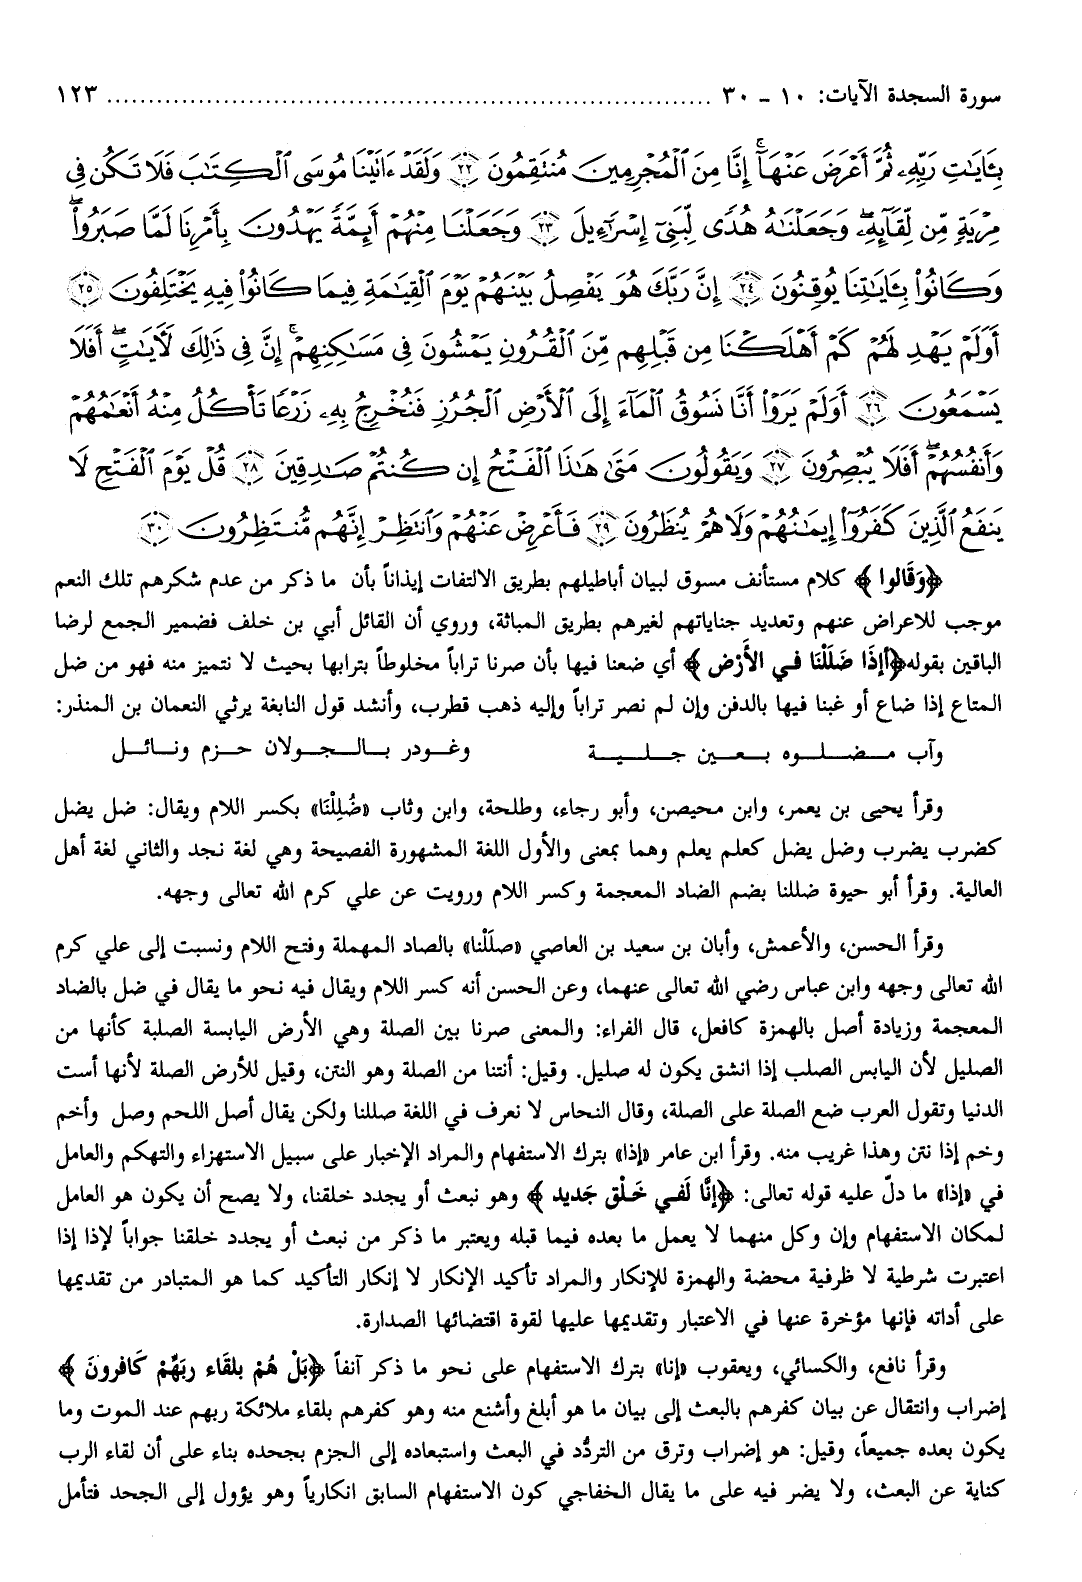 سورة السجدة الآيات: ١٠ - ٣٠ ........................................................................ ١٢٣
بِـَٔايَـٰتِ رَبِّهِۦ ثُمَّ أَعْرَضَ عَنْهَآ ۚ إِنَّا مِنَ ٱلْمُجْرِمِينَ مُنتَقِمُونَ ٢٢ وَلَقَدْ ءَاتَيْنَا مُوسَى ٱلْكِتَـٰبَ فَلَا تَكُن فِى
مِرْيَةٍ مِّن لِّقَآئِهِۦ ۖ وَجَعَلْنَـٰهُ هُدًى لِّبَنِىٓ إِسْرَٰٓءِيلَ ٢٣ وَجَعَلْنَا مِنْهُمْ أَئِمَّةً يَهْدُونَ بِأَمْرِنَا لَمَّا صَبَرُوا۟ ۖ
وَكَانُوا۟ بِـَٔايَـٰتِنَا يُوقِنُونَ ٢٤ إِنَّ رَبَّكَ هُوَ يَفْصِلُ بَيْنَهُمْ يَوْمَ ٱلْقِيَـٰمَةِ فِيمَا كَانُوا۟ فِيهِ يَخْتَلِفُونَ ٢٥
أَوَلَمْ يَهْدِ لَهُمْ كَمْ أَهْلَكْنَا مِن قَبْلِهِم مِّنَ ٱلْقُرُونِ يَمْشُونَ فِى مَسَـٰكِنِهِمْ ۚ إِنَّ فِى ذَٰلِكَ لَـَٔايَـٰتٍ ۖ أَفَلَا
يَسْمَعُونَ ٢٦ أَوَلَمْ يَرَوْا۟ أَنَّا نَسُوقُ ٱلْمَآءَ إِلَى ٱلْأَرْضِ ٱلْجُرُزِ فَنُخْرِجُ بِهِۦ زَرْعًا تَأْكُلُ مِنْهُ أَنْعَـٰمُهُمْ
وَأَنفُسُهُمْ ۖ أَفَلَا يُبْصِرُونَ ٢٧ وَيَقُولُونَ مَتَىٰ هَـٰذَا ٱلْفَتْحُ إِن كُنتُمْ صَـٰدِقِينَ ٢٨ قُلْ يَوْمَ ٱلْفَتْحِ لَا
يَنفَعُ ٱلَّذِينَ كَفَرُوٓا۟ إِيمَـٰنُهُمْ وَلَا هُمْ يُنظَرُونَ ٢٩ فَأَعْرِضْ عَنْهُمْ وَٱنتَظِرْ إِنَّهُم مُّنتَظِرُونَ ٣٠
﴿وَقَالوا﴾ كلام مستأنف مسوق لبيان أباطيلهم بطريق الالتفات إيذاناً بأن ما ذكر من عدم شكرهم تلك النعم
موجب للاعراض عنهم وتعديد جناياتهم لغيرهم بطريق المباثة، وروي أن القائل أبي بن خلف فضمير الجمع لرضا
الباقين بقوله﴿أإذَا ضَلَلْنَا في الأَرْض﴾ أي ضعنا فيها بأن صرنا تراباً مخلوطاً بترابها بحيث لا نتميز منه فهو من ضل
المتاع إذا ضاع أو غبنا فيها بالدفن وإن لم نصر تراباً وإليه ذهب قطرب، وأنشد قول النابغة يرثي النعمان بن المنذر:
وآب مضلوه بعين جلية وغودر بالجولان حزم ونائل
وقرأ يحيى بن يعمر، وابن محيصن، وأبو رجاء، وطلحة، وابن وثاب «ضُلِلْنَا» بكسر اللام ويقال: ضل يضل
كضرب يضرب وضل يضل كعلم يعلم وهما بمعنى والأول اللغة المشهورة الفصيحة وهي لغة نجد والثاني لغة أهل
العالية. وقرأ أبو حيوة ضللنا بضم الضاد المعجمة وكسر اللام ورويت عن علي كرم الله تعالى وجهه.
وقرأ الحسن، والأعمش، وأبان بن سعيد بن العاصي «صلَلْنا» بالصاد المهملة وفتح اللام ونسبت إلى علي كرم
الله تعالى وجهه وابن عباس رضي الله تعالى عنهما، وعن الحسن أنه كسر اللام ويقال فيه نحو ما يقال في ضل بالضاد
المعجمة وزيادة أصل بالهمزة كافعل، قال الفراء: والمعنى صرنا بين الصلة وهي الأرض اليابسة الصلبة كأنها من
الصليل لأن اليابس الصلب إذا انشق يكون له صليل. وقيل: أنتنا من الصلة وهو النتن، وقيل للأرض الصلة لأنها أست
الدنيا وتقول العرب ضع الصلة على الصلة، وقال النحاس لا نعرف في اللغة صللنا ولكن يقال أصل اللحم وصل وأخم
وخم إذا نتن وهذا غريب منه. وقرأ ابن عامر «إذا» بترك الاستفهام والمراد الإخبار على سبيل الاستهزاء والتهكم والعامل
في «إذا» ما دلّ عليه قوله تعالى: ﴿إنَّا لَفي خَلْق جَديد﴾ وهو نبعث أو يجدد خلقنا، ولا يصح أن يكون هو العامل
لمكان الاستفهام وإن وكل منهما لا يعمل ما بعده فيما قبله ويعتبر ما ذكر من نبعث أو يجدد خلقنا جواباً لإذا إذا
اعتبرت شرطية لا ظرفية محضة والهمزة للإنكار والمراد تأكيد الإنكار لا إنكار التأكيد كما هو المتبادر من تقديمها
على أداته فإنها مؤخرة عنها في الاعتبار وتقديمها عليها لقوة اقتضائها الصدارة.
وقرأ نافع، والكسائي، ويعقوب «إنا» بترك الاستفهام على نحو ما ذكر آنفاً ﴿بَلْ هُمْ بلقَاء ربِّهِمْ كَافرونَ﴾
إضراب وانتقال عن بيان كفرهم بالبعث إلى بيان ما هو أبلغ وأشنع منه وهو كفرهم بلقاء ملائكة ربهم عند الموت وما
يكون بعده جميعاً، وقيل: هو إضراب وترق من التردُّد في البعث واستبعاده إلى الجزم بجحده بناء على أن لقاء الرب
كناية عن البعث، ولا يضر فيه على ما يقال الخفاجي كون الاستفهام السابق انكارياً وهو يؤول إلى الجحد فتأمل